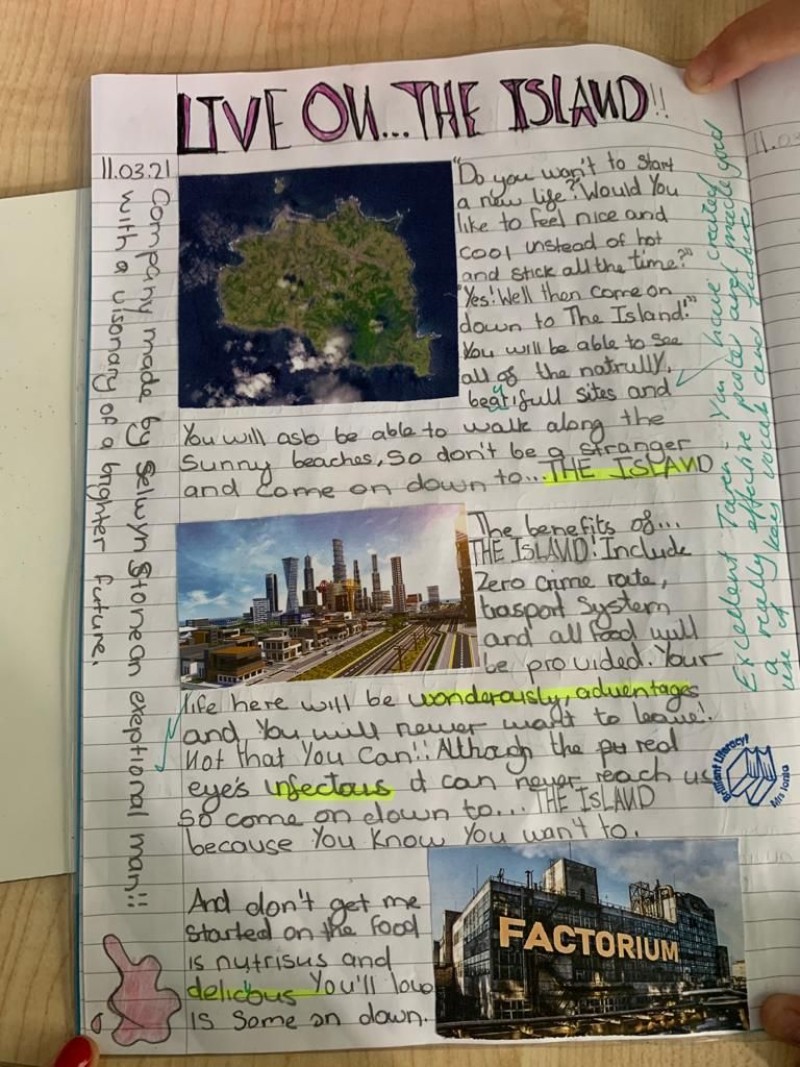 LIVE ON...THE ISLAND!!
11.03.21
Company made by Selwyn Stone an exeptional man!!!
with a visonary of a brighter future.
"Do you won't to start
a new life? Would You
like to feel nice and
cool instead of hot
and stick all the time?"
"Yes! Well then come on
down to The Island!"
You will be able to see
all of the natrully,
beatifull sites and
You will aslo be able to walk along the
Sunny beaches, So don't be a stranger
and come on down to... THE ISLAND
The benefits of...
THE ISLAND! Include
Zero crime rate,
trasport System
and all food will
be provided. Your
life here will be wonderously, adventages
and You will never want to leave!
Not that You Can!! Although the red
eye's infectous it can never reach us
So come on down to... THE ISLAND
because You Know You want to.
And don't get me
Started on the food
is nutrisus and
delicous You'll love
is Some on down.
FACTORIUM
Excellent You have created
a really effective poster and made good
use of key vocab and features
Brilliant Literacy!
Mrs Ionta
11.0